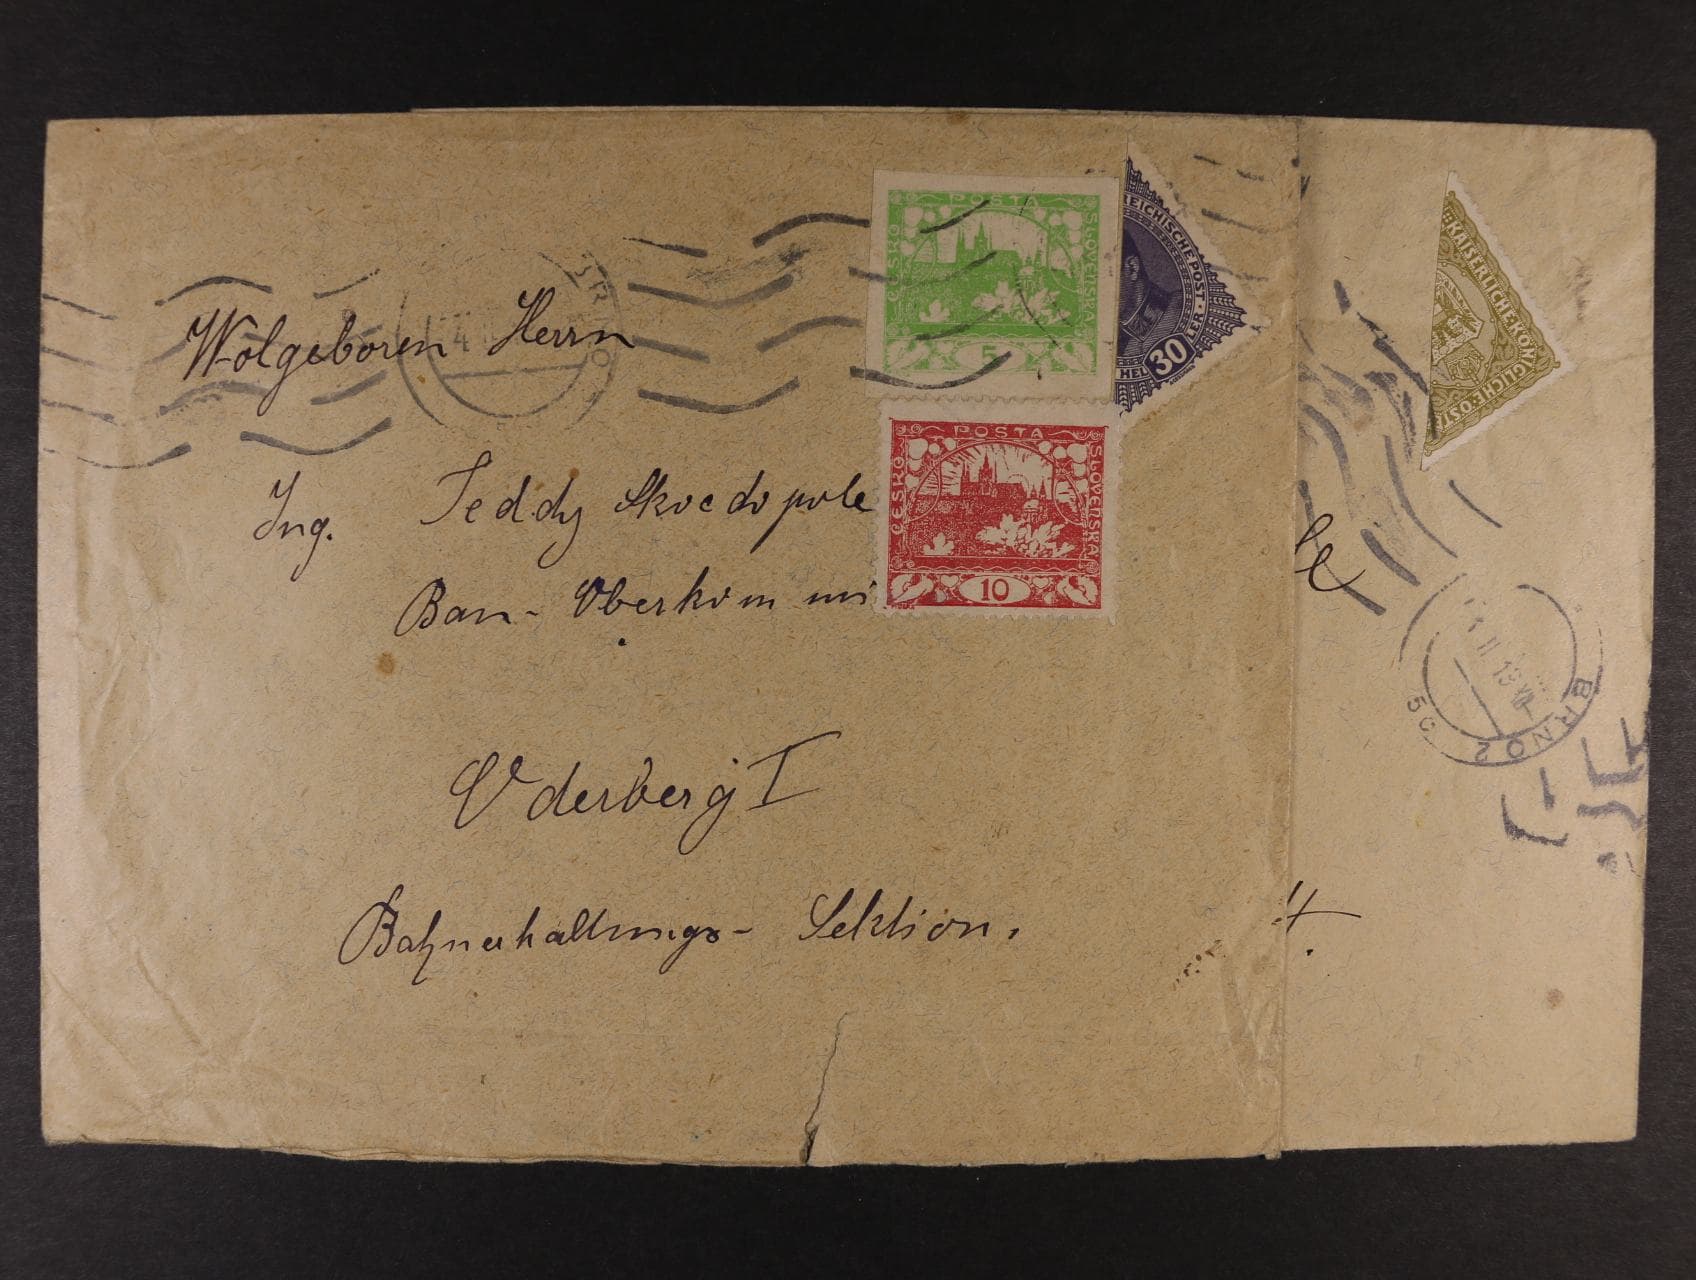 Wolgeboren Herrn
Ing. Teddy Skocdopole
Ban-Oberkommi
Oderberg I
Bahnerhaltungs- Sektion.
POSTA
ČESKO
SLOVENSKÁ
5
POSTA
ČESKO
SLOVENSKÁ
10
REICHISCHE POST
LER
30
HEL
KAISERLICHE KÖNIGLICHE ÖST
BRNO 2
5c